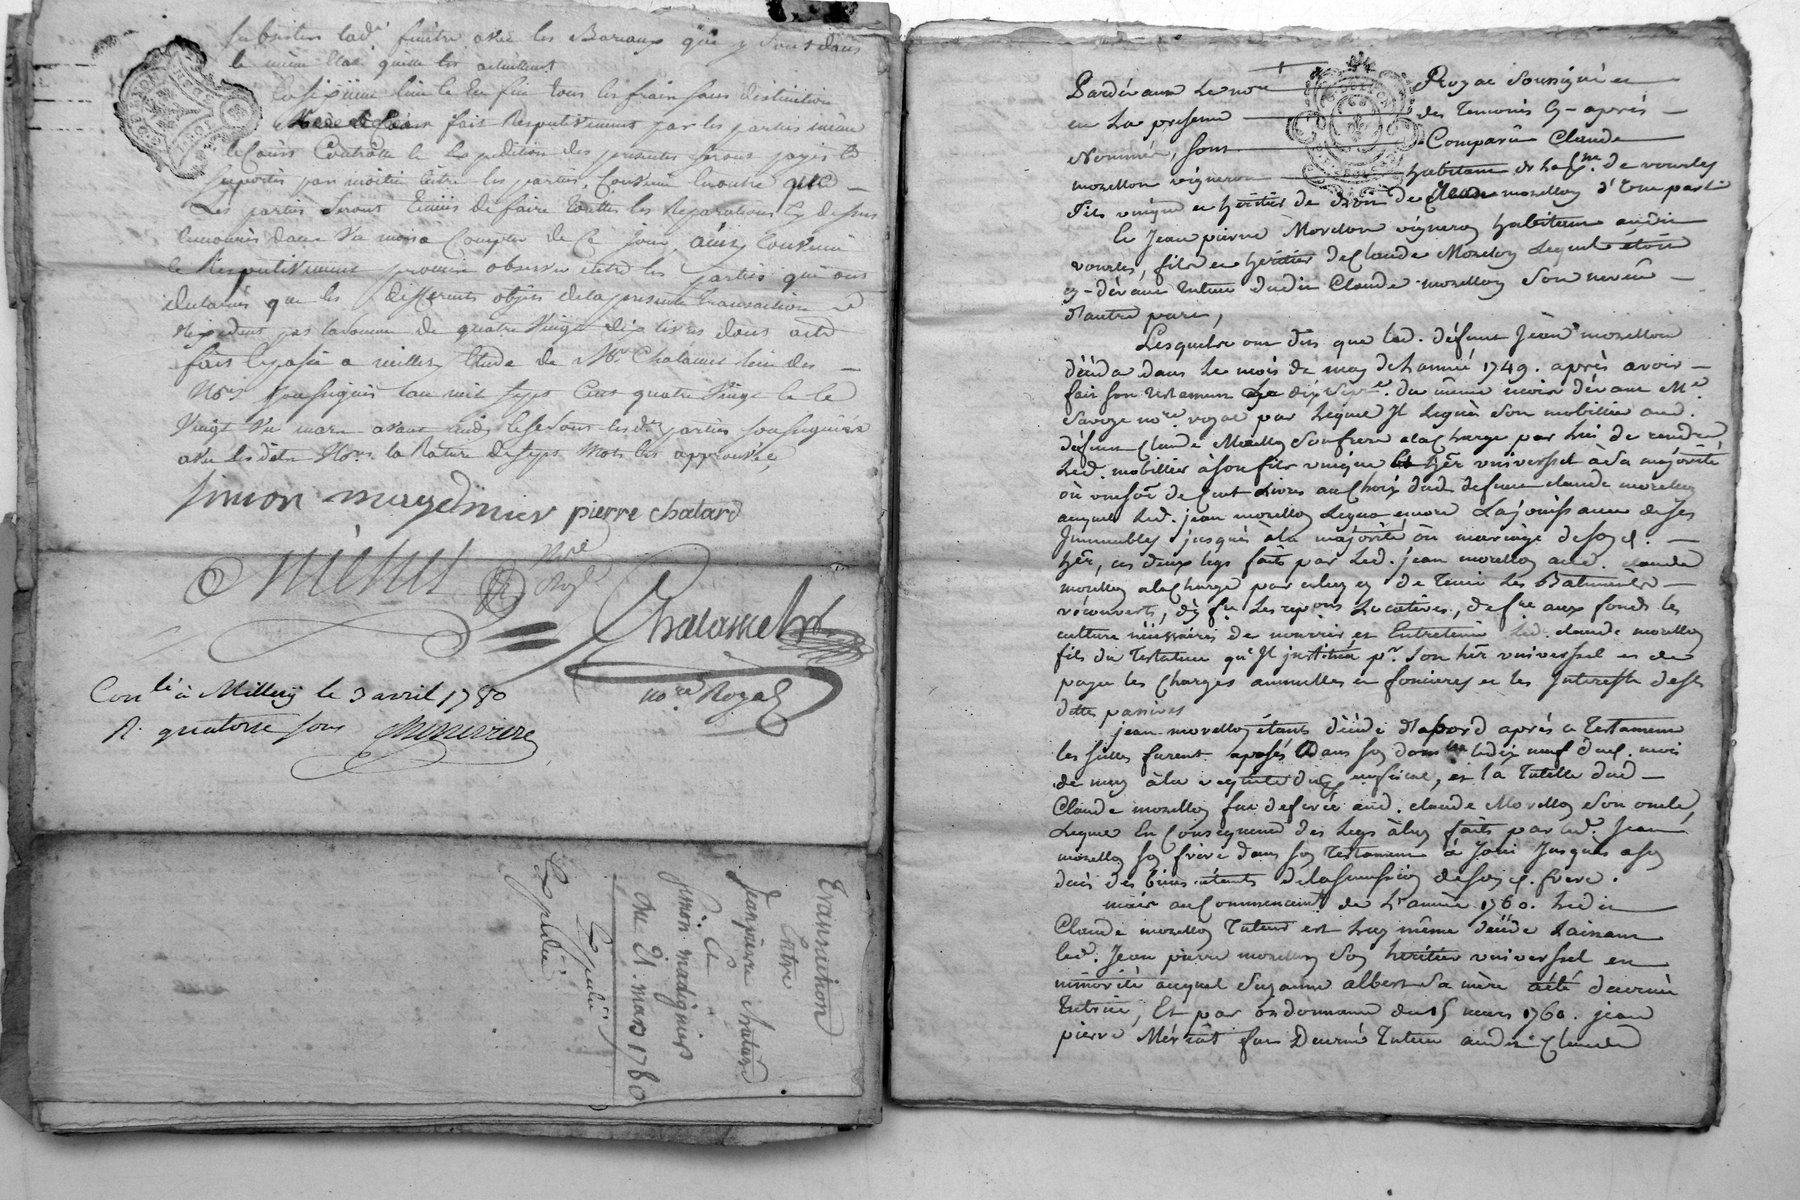 subsister lad.e fenêtre avec les Bareaux qui y sont dans
le même état qu'elle les actuellement
sixième lieu tous les frais sans distinction
fait Respectivement par les parties même
le Contrôle & Expedition des presentes seront payés &
suportés par moitié entre les parties, Convenu enoutre que
Les parties seront tenües de faire toutes les Reparations cy dessus
enoncées dans un mois a Compter de Ce jour, ainsy Convenu
& Respectivement promis observer entre les parties qui ont
declarés que les differents objets de la presente transaction n'
excedent pas la somme de quatre Vingt dix livres dont acte
fait & passé a millery Etude de Me Chalamel l'un des
Nores soussignés l'an mil sept Cent quatre Vingt & le
Vingt un mars avant midy lesd. parties soussignées
avec lesdits Nores la Rature de sept mots les approuvée,
simon madignier pierre chatard
nore Royl
Chalamel
nore Royal
Conlé à Millery le 3 avril 1780
R. quatorze sous
transaction
Entre
Jean pierre chatard
Et
simon madignier
Du 21. mars 1780
Expédié
Expédiée
Pardevant Le nore Royal soussigné et
en La presence des Temoins cy-après
Nommés, sont Comparu Claude
morellon vigneron habitant de la psse de vourles
Fils unique et héritier de droit de morellon d'Une part
Et Jean pierre Morellon vigneron habitant audit
vourles, fils et héritier de Claude Morellon Lequel étoit
cy-devant tuteur dudit Claude morellon son neveu
d'autre part,
Lesquels ont dit que led. défunt Jean morellon
décéda dans Le mois de may de l'année 1749. après avoir
fait son testament Le dix sept.e du même mois devant Me
Savoye nore royal par Lequel Il Leguà son mobilier aud.
défunt Claude Morellon son frere à la Charge par lui de rendre
Led. mobilier à son fils unique hér universel à sa majorité
où une somme de Cent Livres au Choix dud. defunt claude morellon
auquel Led. jean morellon Legua encore La jouissance de ses
Immeubles jusqu'à la majorité où mariage de son d.
hér, ces deux legs faits par Led. jean morellon aud. claude
morellon à la Charge par celuy cy de Tenir Les Batiments
récouverts, d'y fre Les répons Locatives, de fre aux fonds les
culture nécessaires de nourrir et Entretenir Led. claude morellon
fils du Testateur qu'Il institua pr. son hér universel et de
payer les Charges annuelles et foncieres et les Interests des
dettes passives
jean morellon étant décédé d'abord après ce testament
les scellés furent aposés dans son domicile le dix neuf dud. mois
de may à la requete du et la tutelle dud.
Claude morellon fut deferée aud. claude Morellon son oncle,
Lequel En Consequence des Legs à luy faits par led. Jean
morellon son frère dans son Testament a Joui Jusques a son
décès des biens étants de la succession de son d. frère.
mais au Commencement de L'année 1760. Ledit
Claude morellon Tuteur est Luy même décédé Laissant
led. Jean pierre morellon son héritier universel en
minorité auquel Suzanne albert sa mère a été décernée
tutrice, Et par ordonnance du 15 mars 1760. jean
pierre fut Décerné tuteur audit Claude